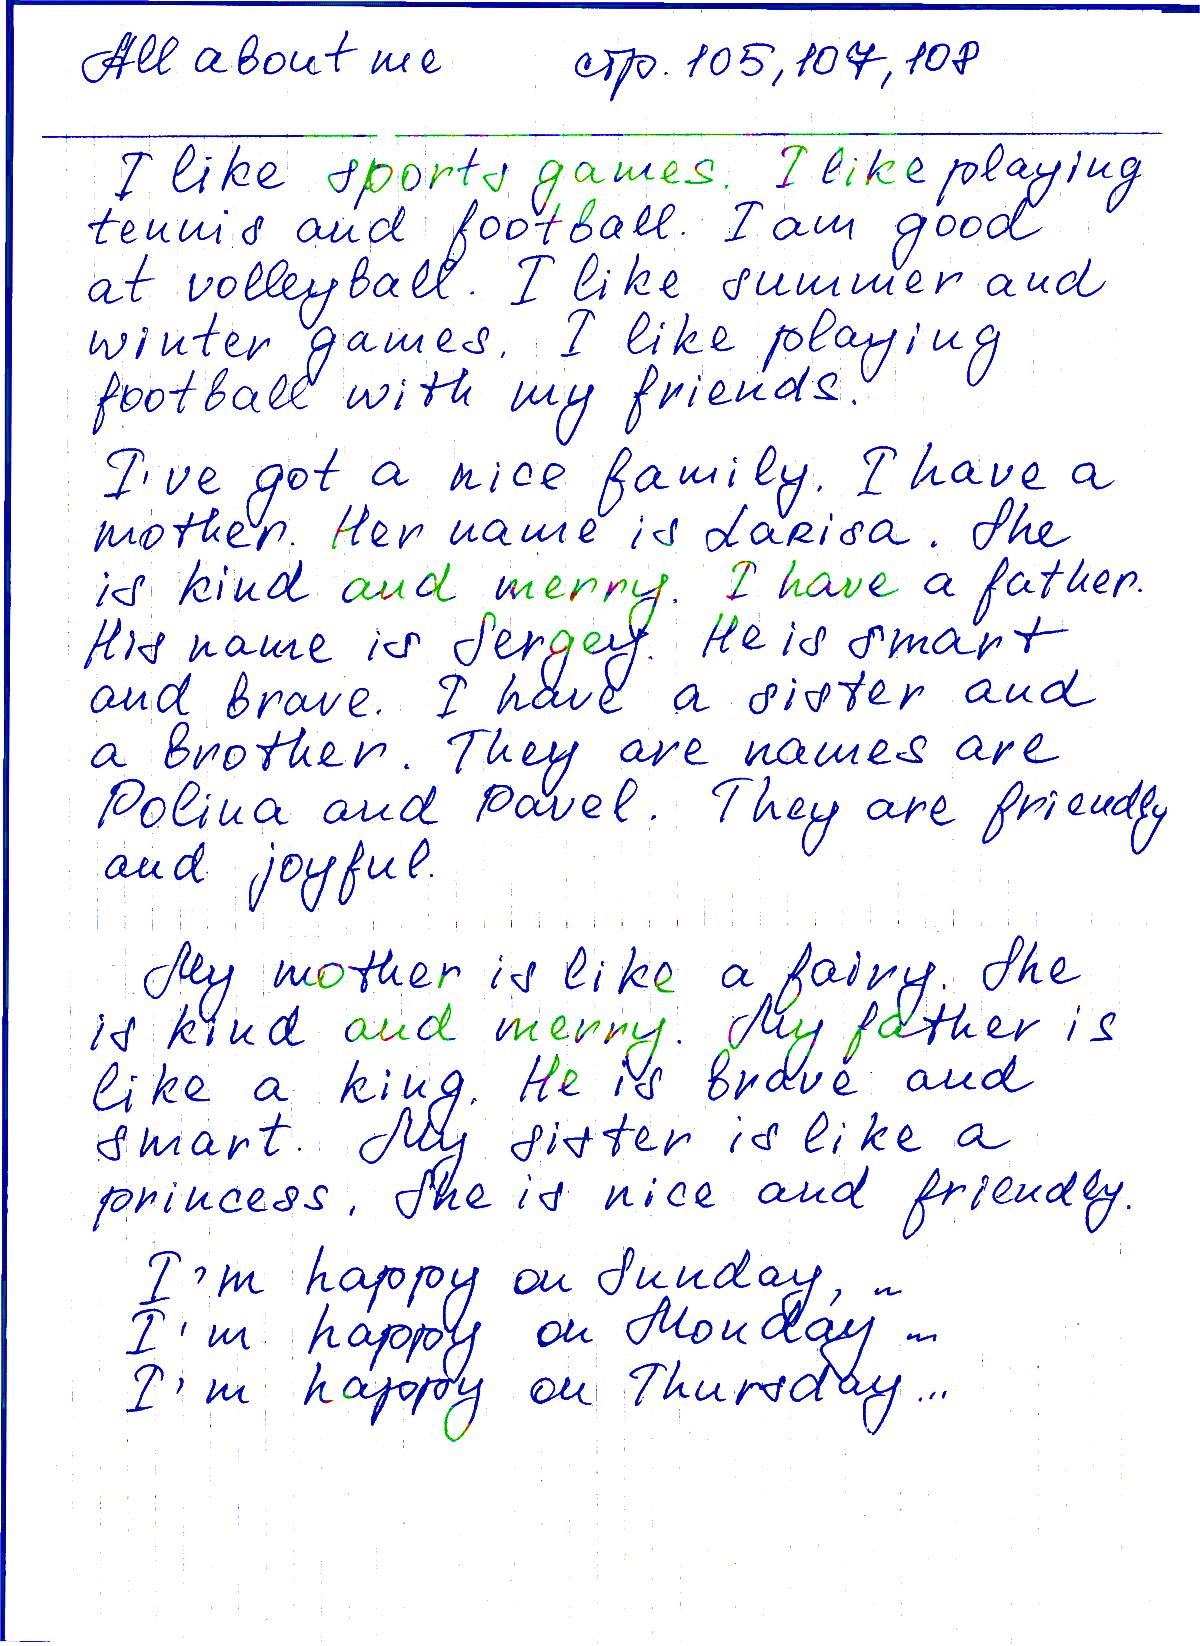 All about me стр. 105, 107, 108
I like sports games. I like playing
tennis and football. I am good
at volleyball. I like summer and
winter games. I like playing
football with my friends.
I've got a nice family. I have a
mother. Her name is Larisa. She
is kind and merry. I have a father.
His name is Sergey. He is smart
and brave. I have a sister and
a brother. They are names are
Polina and Pavel. They are friendly
and joyful.
My mother is like a fairy. She
is kind and merry. My father is
like a king. He is brave and
smart. My sister is like a
princess. She is nice and friendly.
I'm happy on Sunday, ...
I'm happy on Monday ...
I'm happy on Thursday...